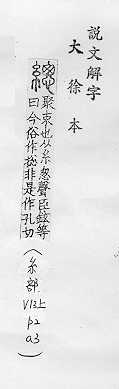 說文解字
大徐本
總
聚束也从糸悤聲臣鉉等
曰今俗作揔非是作孔切
(糸部
V13上
p2
a3)